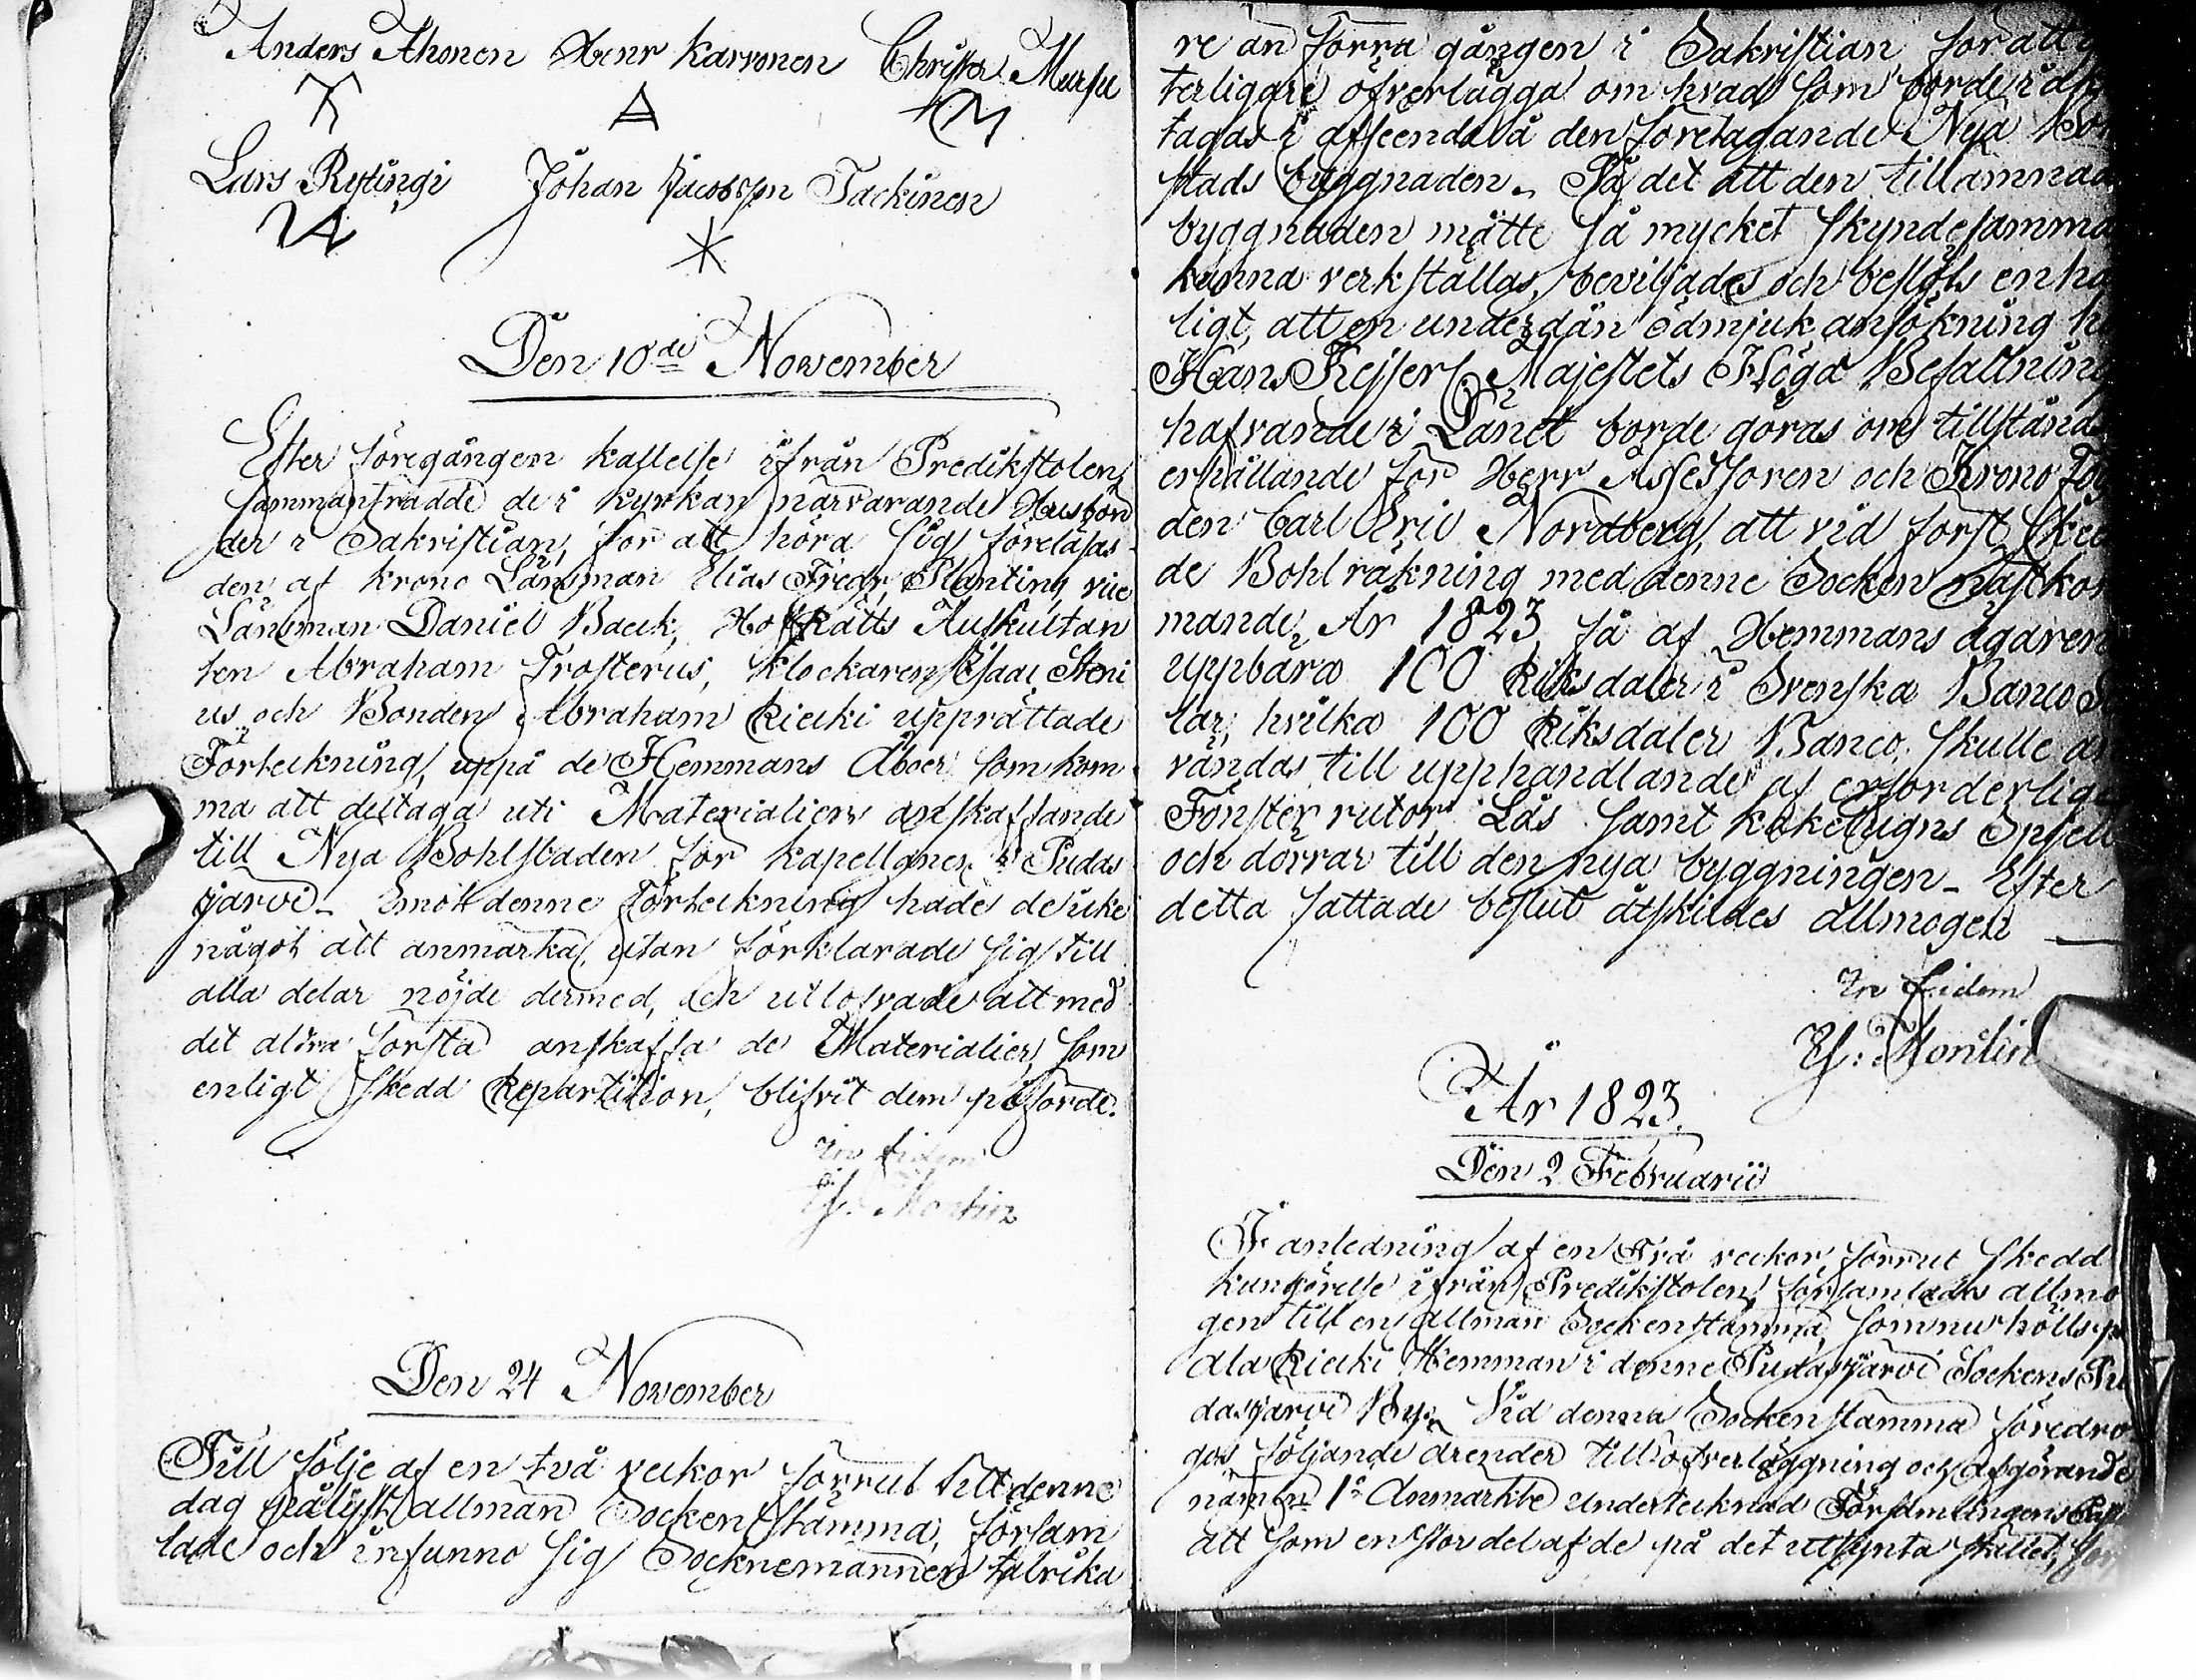 Anders Ahonen Henr Karvonen Christer Mursu
Lars Rytingi Johan Jacobsson Tackinen
Den 10de November
Efter föregången kallelse ifrån Predikstolen,
sammanträdde de i kyrkan närvarande Husbön
der i Sakristian, för att höra sig föreläsas
den af krono Länsman Elias Fredr. Planting, vice
Länsman Daniel Baeck, HofRätts Auskultan
ten Abraham Frosterus, klockaren Isaac Steni
us och Bonden Abraham Riekki upprättade
Förteckning, uppå de Hemmans Åboer som kom
ma att deltaga uti Materialiers anskaffande
till Nya Bohlstaden för kapellanen i Pudas
järvi. Emot denne Förteckning hade de icke
något att anmärka, utan förklarade sig till
alla delar nöjde dermed, och utlofvade att med
det aldra första anskaffa de Materialier, som
enligt skedd Repartition, blifvit dem påförde.
In fidem
Es. Montin
Den 24 November
Till följe af en två veckor förrut till denne
dag pålyst allmän Sockenstämma, försam
lade och infunno sig Socknemännen talrika
re än förra gången i Sakristian för att y
terligare öfverlägga om hvad som borde
tagas i afseende å den företagande Nya Bol
stads byggnaden. På det att den tillämnade
byggnaden måtte så mycket skyndesamma
kunna verkställas, beviljades och beslöts enhä
ligt, att en underdån ödmjuk ansökning h
Hans Kejserl Majestets Höga Befallnings
hafvande i Länet borde göras om tillstånds
erhållande för Herr Assessoren och Krono Fog
den Carl Eric Nordberg, att vid först ske
de Bohl räkning med denne Socken nästkom
mande År 1823 få af Hemmans ägaren
uppbära 100 Riksdaler i Svenska Banco
lar, hvilka 100 Riksdaler Banco, skulle an
vändas till upphandlande af erforderlige
Fönster rutor Lås samt kakelugns Spjell
och dörrar till den nya byggningen. Efter
detta fattade beslut åtskildes allmogen
In fidem
Es. Montin
År 1823.
Den 2 Februarii
I anledning af en Två veckor, förrut skedd
kungörelse ifrån Predikstolen, församlades allmo
gen till en allmän Sockenstämma, som nu hölls p
ala Riekki Hemman i denne Pudasjärvi Sockens Pu
dasjärvi By. Vid denna Sockenstämma föredro
gos följande ärender till öfverläggning och afgörande
nämln 1o Anmärkte undertecknad Församlingens
att som en stor del af de på det utsynta stället,